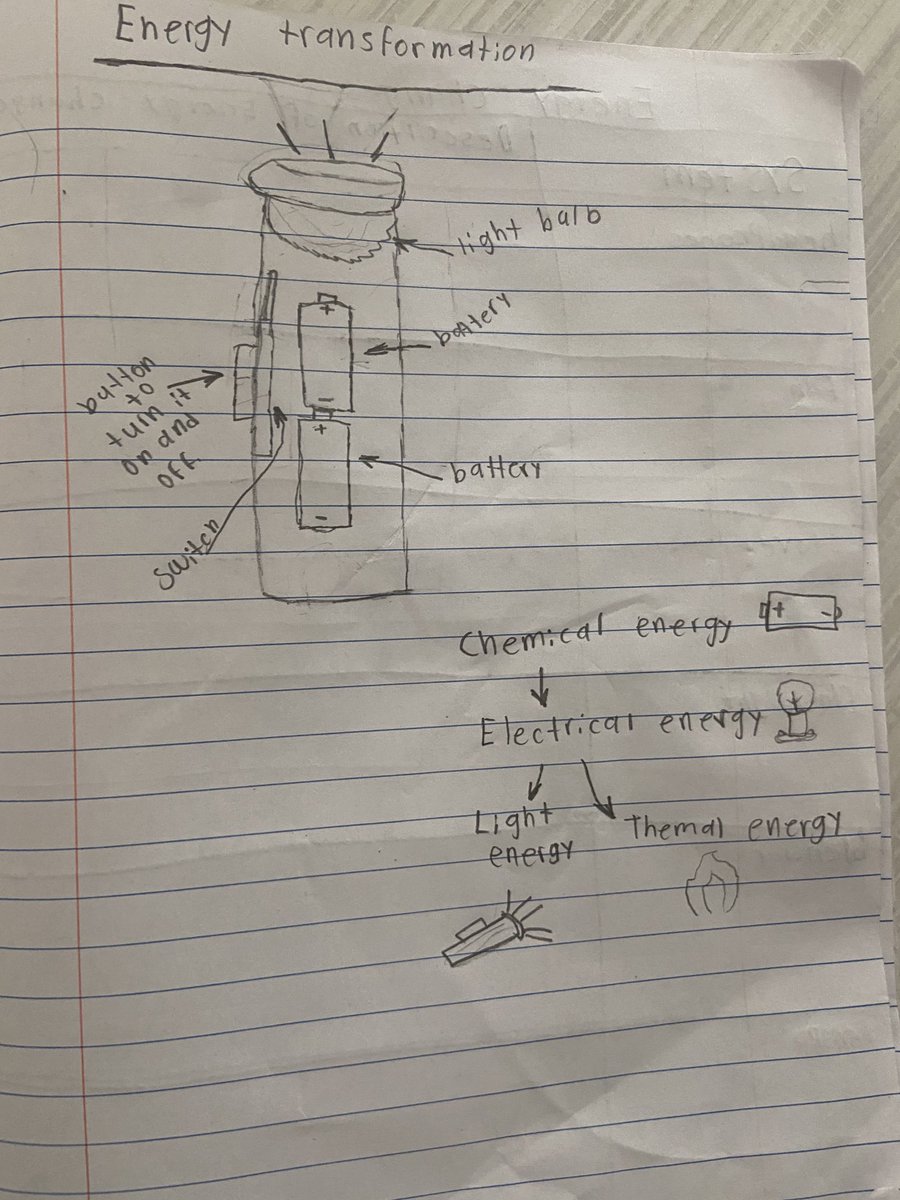 Energy transformation
light balb
battery
button
to
turn it
on and
off
battery
switch
+
-
+
-
Chemical energy + -
Electrical energy
Light
energy
Themal energy